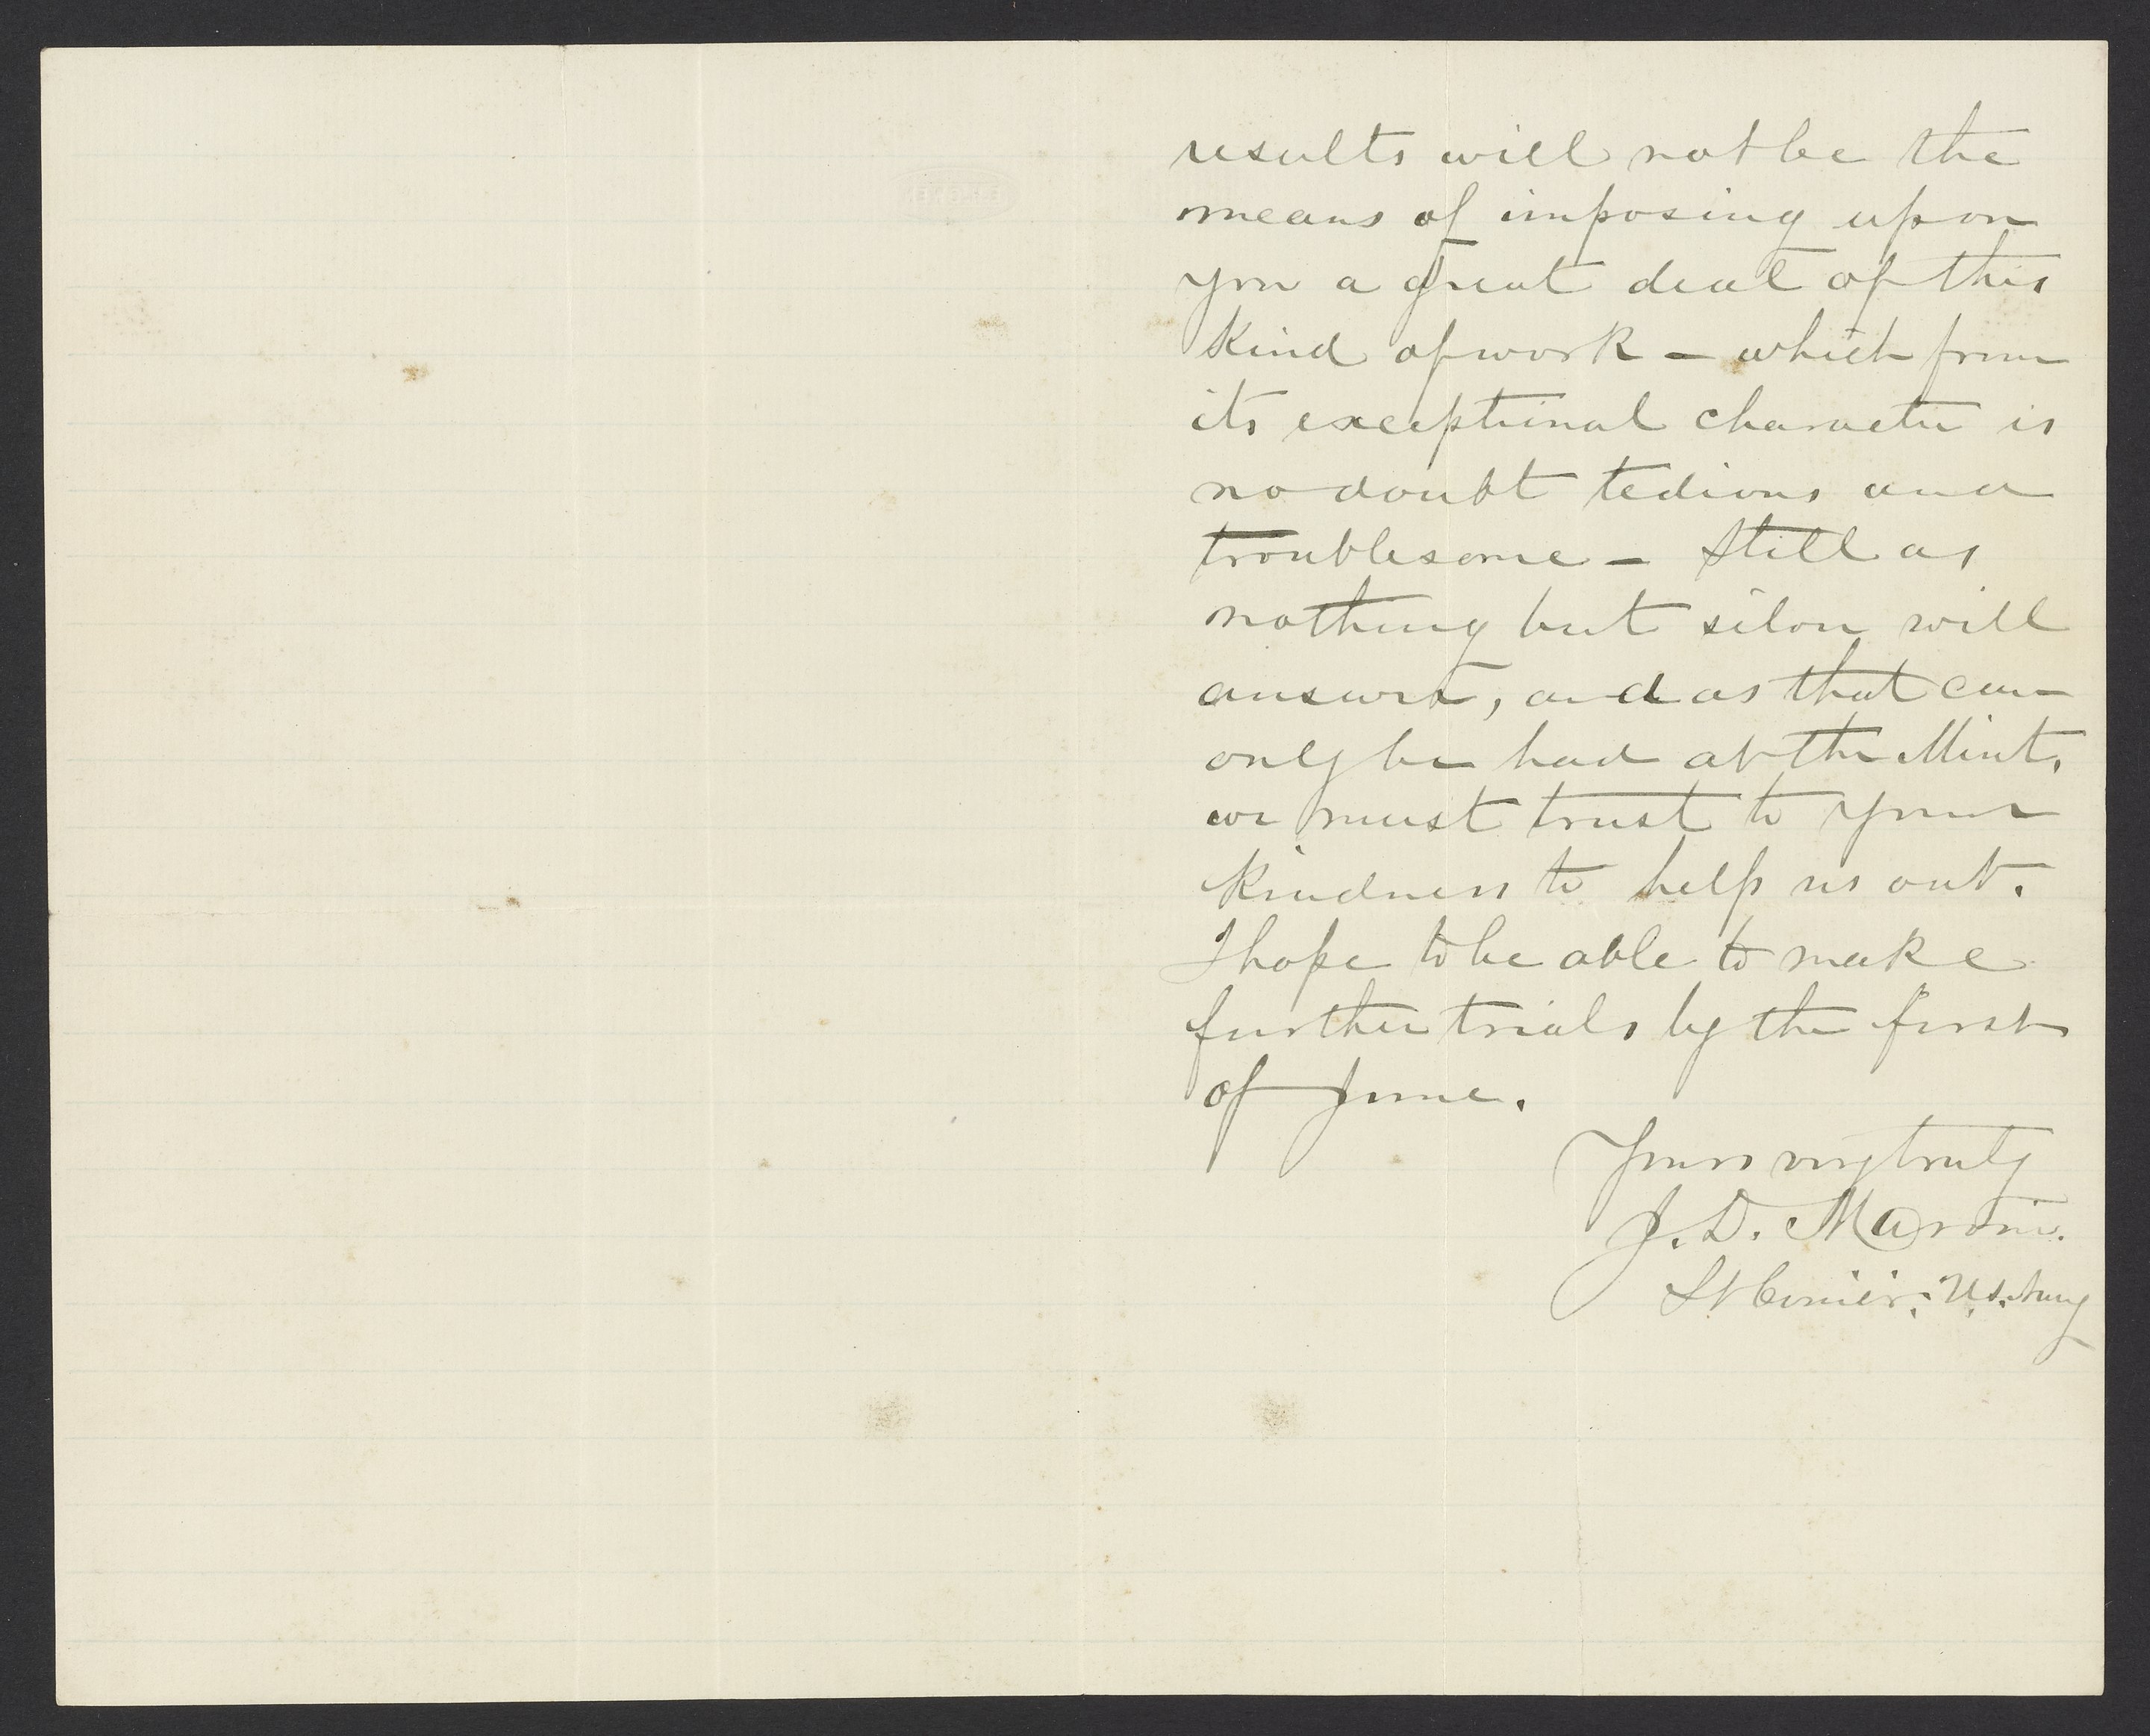 results will not be the
means of imposing upon
you a great deal of this
kind of work – which from
its exceptional character is
no doubt tedious and
troublesome – Still as
nothing but silver will
answer, and as that can
only be had at the Mint,
we must trust to your
kindness to help us out.
I hope to be able to make
further trials by the first
of June.
Yours very truly
J. D. Marvin.
Lt Comdr. U.S. Navy